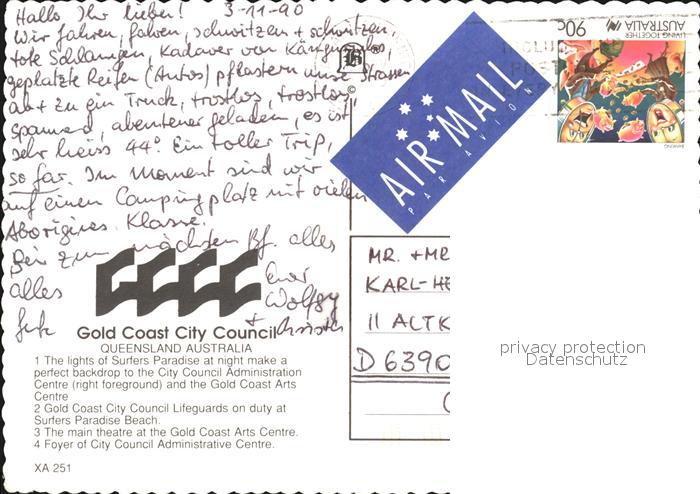 Hallo Ihr lieben! 3-11-90
Wir fahren, fahren, schwitzen + schwitzen,
tote Schlangen, Kadaver von Känguruhs,
geplatzte Reifen (Autos) pflastern unsre Strassen
ab + zu ein Truck, trostlos, trostlos,
spannend, abenteuer geladen, es ist
sehr heiss 44° Ein toller Trip,
so far. Im Moment sind wir
auf einen Campingplatz mit vielen
Aborigines. Klasse.
Bis zum nächsten Bf. alles
alles Euer
Gute Wolfgg
+ Christa
Gold Coast City Council
QUEENSLAND AUSTRALIA
1 The lights of Surfers Paradise at night make a
perfect backdrop to the City Council Administration
Centre (right foreground) and the Gold Coast Arts
Centre
2 Gold Coast City Council Lifeguards on duty at
Surfers Paradise Beach.
3 The main theatre at the Gold Coast Arts Centre.
4 Foyer of City Council Administrative Centre.
XA 251
©
AIR MAIL
PAR AVION
90c
AUSTRALIA
LIVING TOGETHER
MR. + MR
KARL-HE
11 ALTK
D 6390
privacy protection
Datenschutz